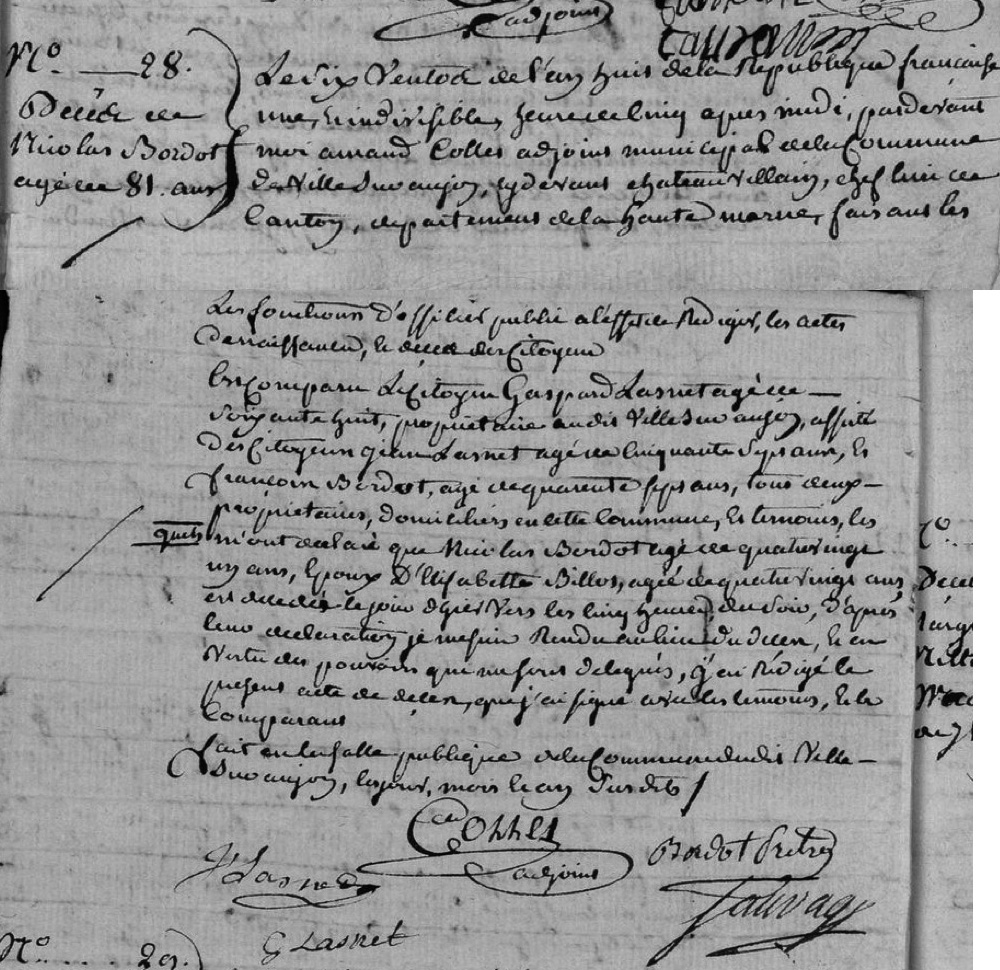 adjoint
N.o 28.
Décès de
Nicolas Bordot
agé de 81. ans
Le six Ventose de l'an huit de la République francaise
une, & indivisible, heure de cinq apres midi, pardevant
moi amand Collès adjoint municipal de la Commune
de Ville Sur aujon, cy devant chateauvillain, chef lieu de
Canton, département de la haute marne, faisant les
Les fonctions d'officier public a l'effet de Rédiger, les actes
de naissance, le décès des Citoyens
Est Comparu Le Citoyen Gaspard Lasnet agé de —
Soixante huit, propriétaire audit Ville Sur aujon, assisté
Des Citoyens Lasnet agé de Cinquante Sept ans, Et
francois Bordot, agé de quarente sept ans, tous deux —
propriétaires, domiciliés en cette Commune, Et temoins, les
quels m'ont déclaré que Nicolas Bordot agé de quatre vingt
un ans, Epoux D'Elisabette Billot, agée de quatre vingt ans
est décédé le jour d'hier Vers les cinq heures du Soir, d'après
leur déclaration je me suis Rendu au lieu du décès, & en
Vertu des pouvoirs qui me sont délegués, j'ai Rédigé le
présent acte de décès, que j'ai signé avec les temoins, & le
Comparant
fait en la salle publique de la Commune dudit Ville —
Sur aujon, les jour, mois & an Susdits /
Collès
adjoint
Bordot Prêtre
J Lasnet
Sauvage
G Lasnet
N.o 29.